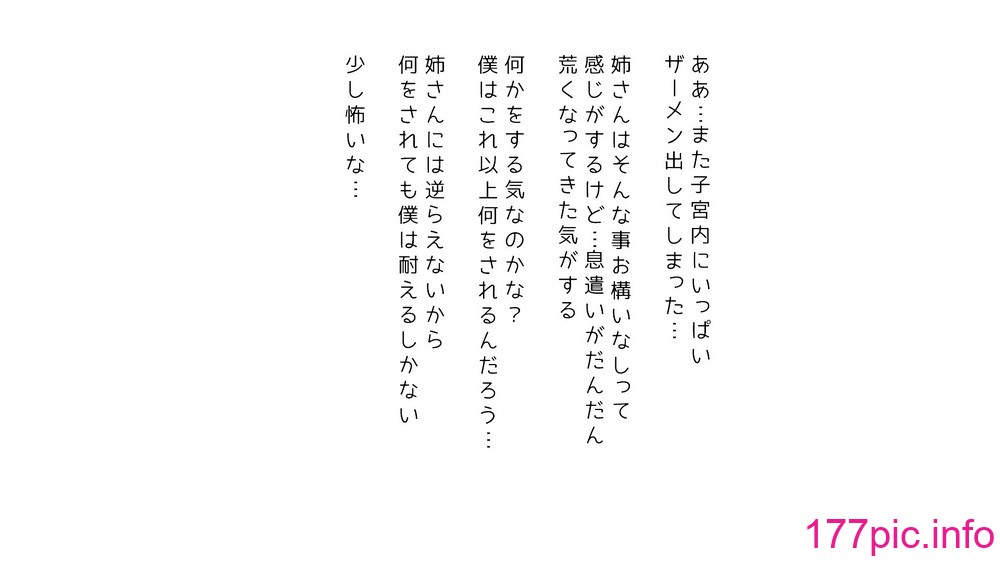 ああ…また子宮内にいっぱい
ザーメン出してしまった…
姉さんはそんな事お構いなしって
感じがするけど…息遣いがだんだん
荒くなってきた気がする
何かをする気なのかな?
僕はこれ以上何をされるんだろう…
姉さんには逆らえないから
何をされても僕は耐えるしかない
少し怖いな…
177pic.info